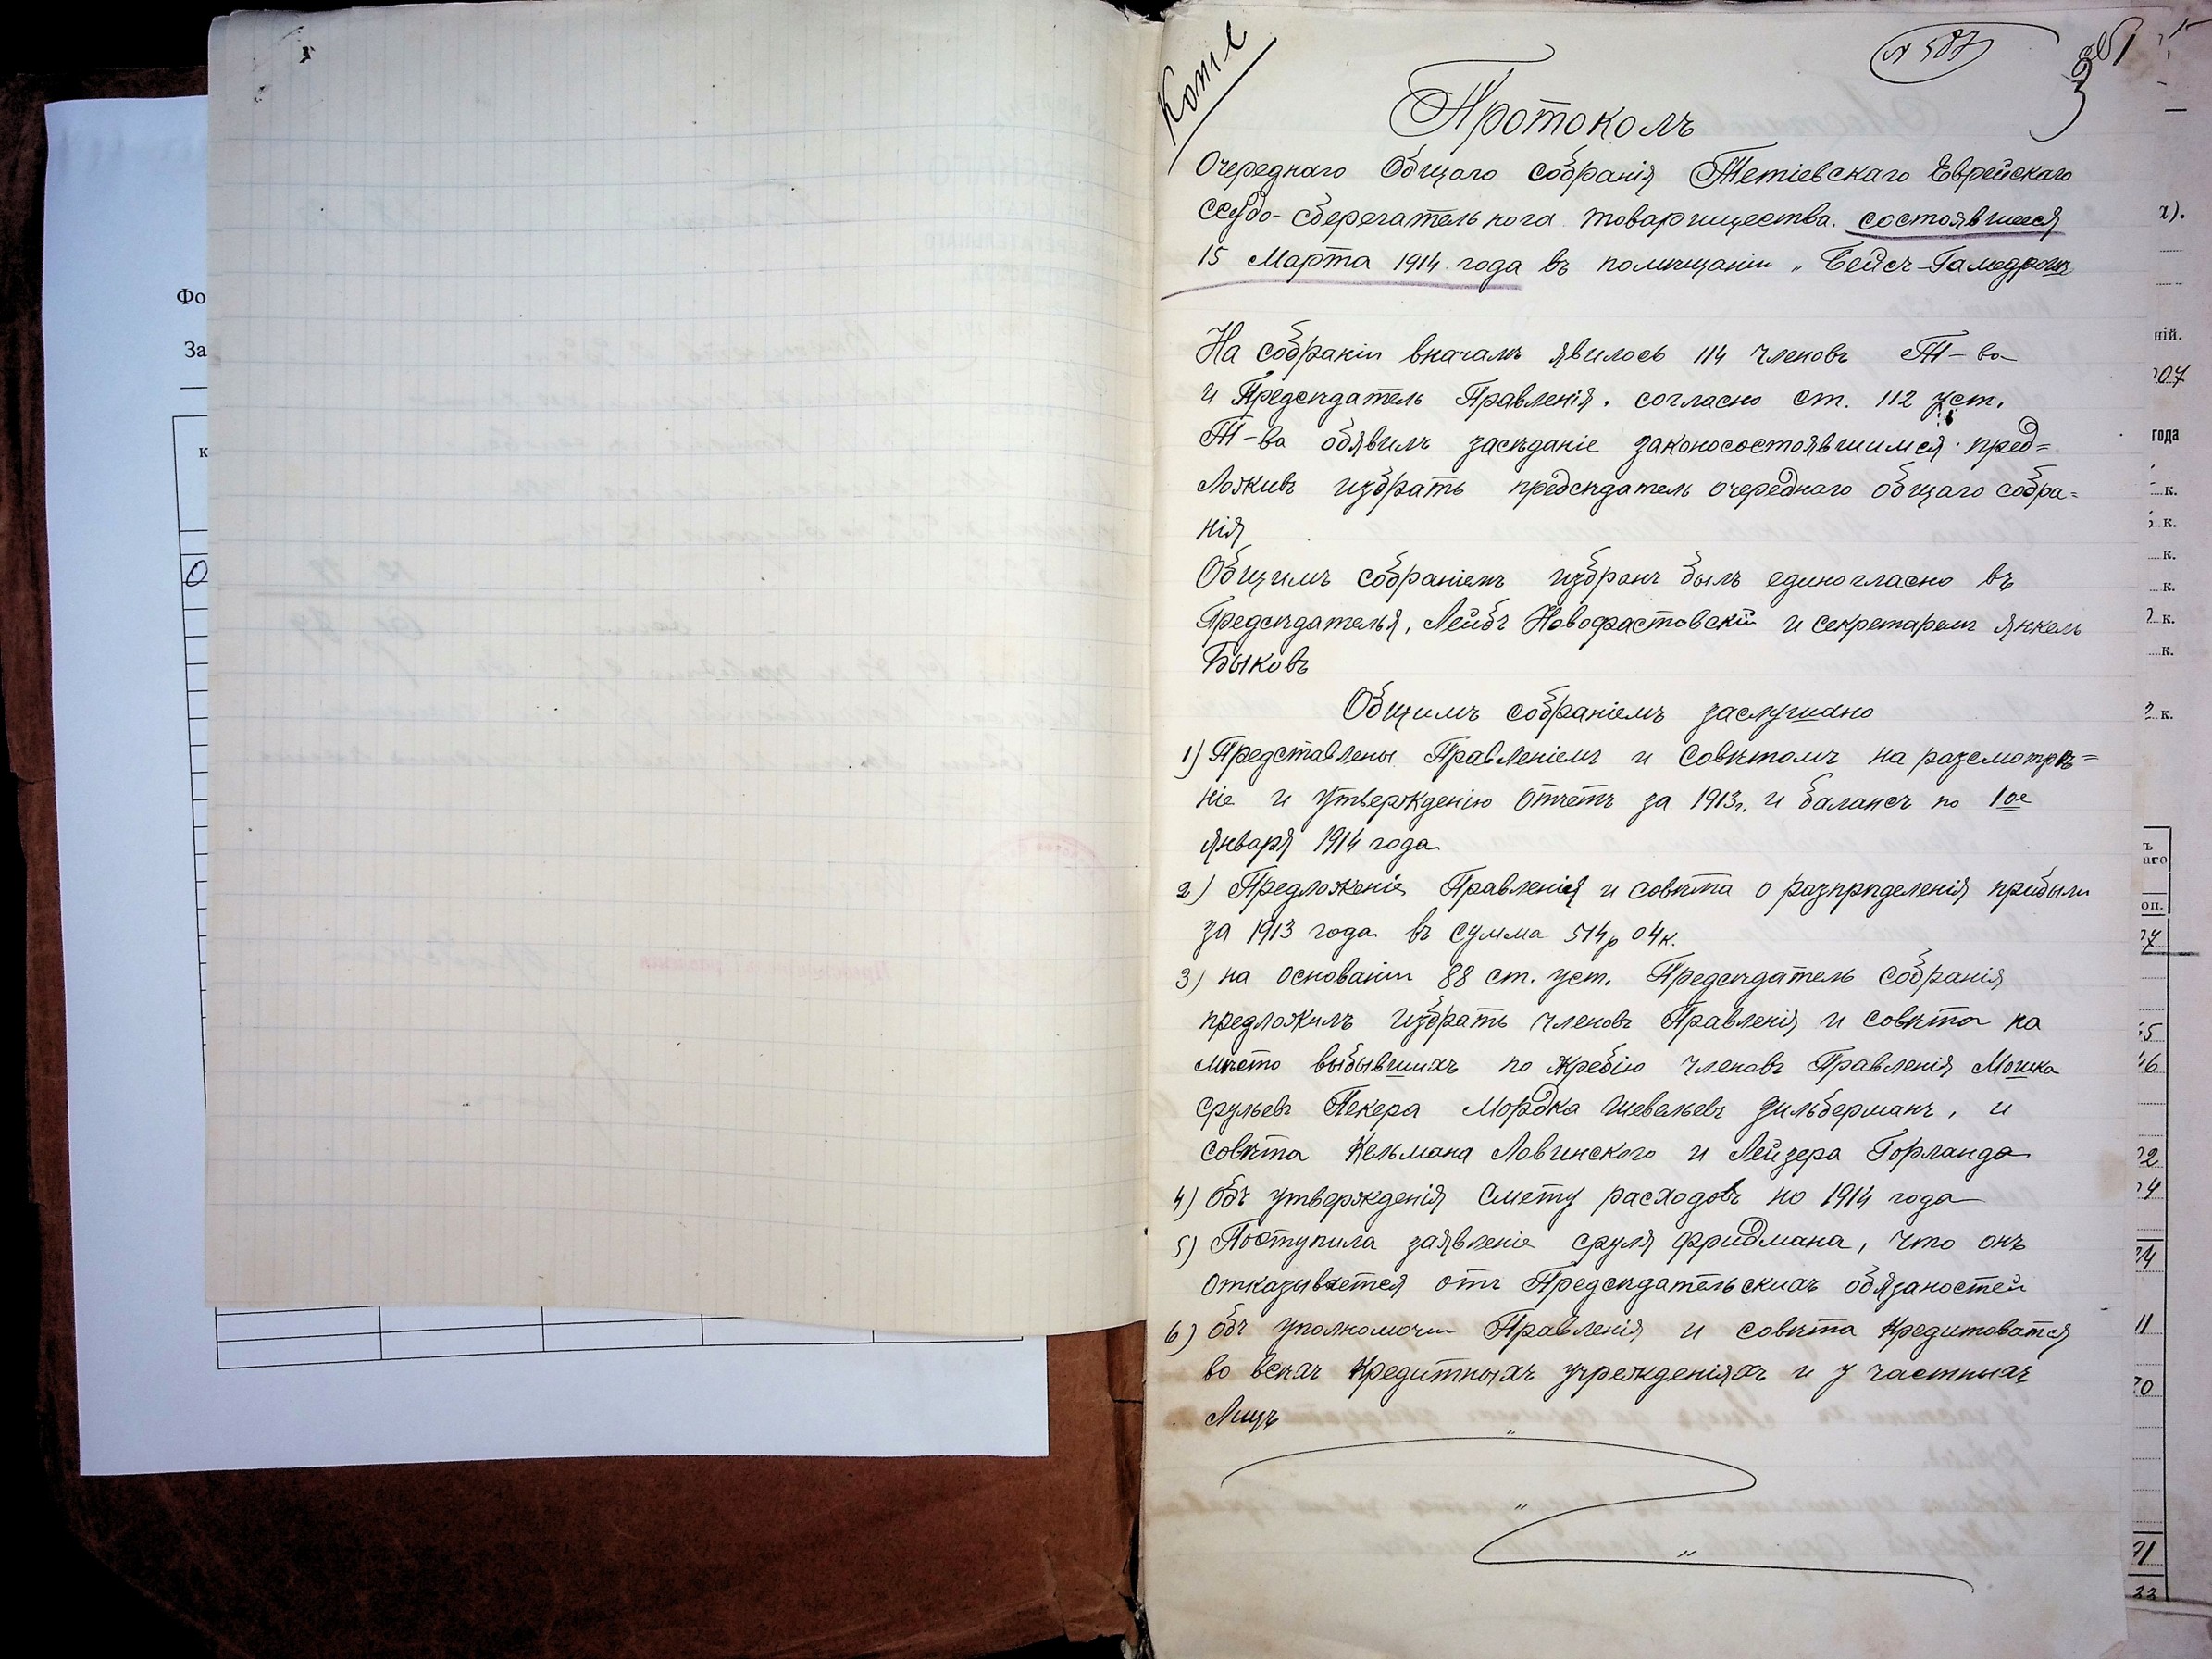 Фо
За
к
О
Копіе
№ 587
Протоколъ
Очереднаго Общаго собранія Тетіевскаго Еврейскаго
ссудо-сберегательнога товарищества. состоявшееся
15 Марта 1914 года въ помѣщаніи „Бейсъ-Гамедрошъ
На собраніи вначалѣ явилось 114 членовъ Т-ва
и Предсѣдатель Правленія. согласно ст. 112 уст.
Т-ва обявилъ засѣданіе законосостоявшимся. пред=
ложивъ избрать предсѣдатель очереднаго общаго собра=
нія
Общимъ собраніемъ избранъ былъ единогласно въ
Предсѣдателья, Лейбъ Новофастовскій и секретаремъ Янкель
Быковъ
Общимъ собраніемъ заслушано
1) Представлены Правленіемъ и Совѣтомъ на разсмотрѣ=
ніе и утвержденію Отчетъ за 1913г. и балансъ по 1ое
Января 1914 года
2) Предложеніе Правленія и совѣта о разпрѣделенія прибыли
за 1913 года въ сумма 514р 04к.
3) на основаніи 88 ст. уст. Предсѣдатель собранія
предложилъ избрать членовъ Правленія и совѣта на
мѣсто выбывшихъ по жребію членовъ Правленія Мошка
Срульевъ Пекера Мордка Шевельевъ Зильберманъ, и
совѣта Кельмана Ловинского и Лейзера Горланда
4) Объ утвержденія Смету расходовъ по 1914 года
5) Поступила заявленіе Сруля Фридмана, что онъ
отказывается отъ Предсѣдательскихъ обязаностей
6) Объ уполномочіи Правленія и совѣта кредитоватся
во всѣхъ Кредитныхъ учрежденіяхъ и у частныхъ
Лицъ
х).
ній.
07
года
к.
к.
к.
к.
к.
к.
к.
ъ
аго
оп.
5
46
4
11
70
91
33